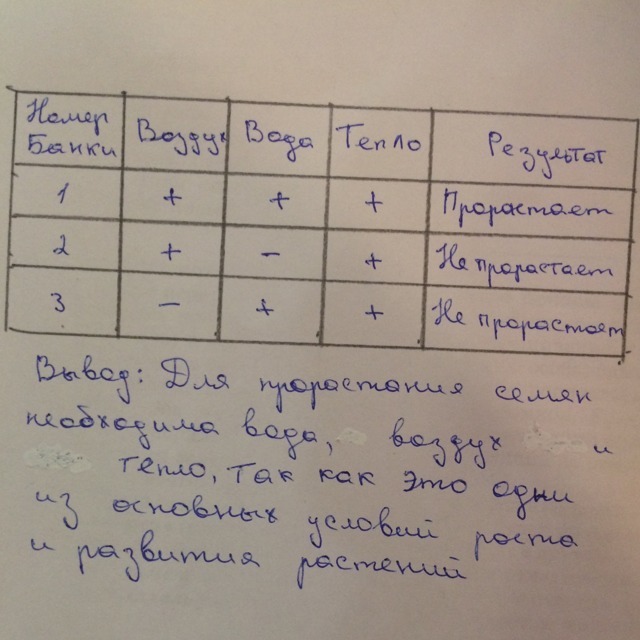 Номер Банки Воздух Вода Тепло Результат
1 + + + Прорастает
2 + - + Не прорастает
3 - + + Не прорастает
Вывод: Для прорастания семян
необходима вода, воздух и
тепло, так как это одни
из основных условий роста
и развития растений